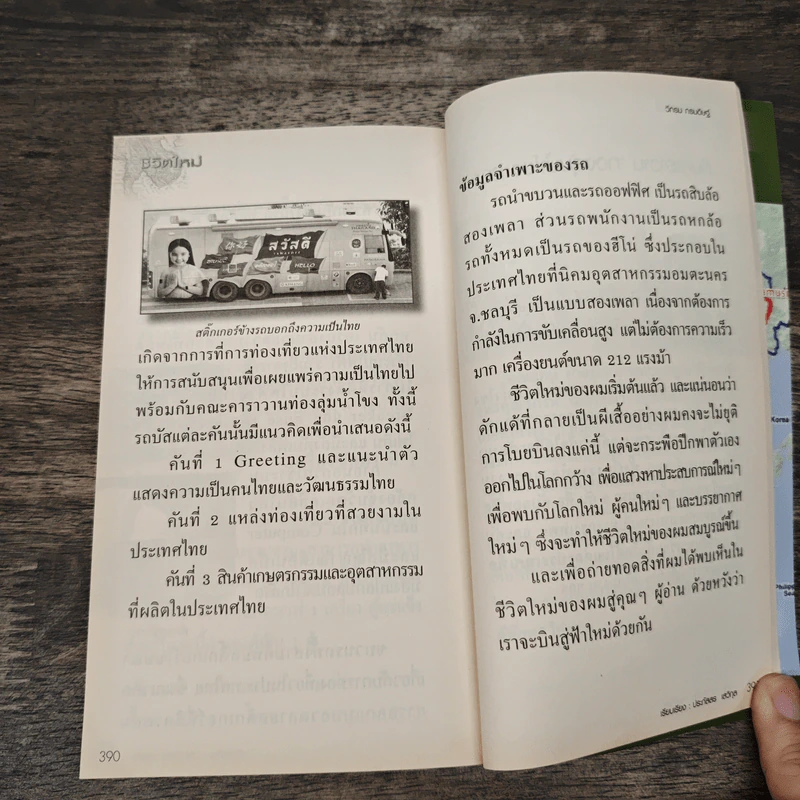 ชีวิตใหม่
สวัสดี
HELLO
สติ๊กเกอร์ข้างรถบอกถึงความเป็นไทย
เกิดจากการที่การท่องเที่ยวแห่งประเทศไทย
ให้การสนับสนุนเพื่อเผยแพร่ความเป็นไทยไป
พร้อมกับคณะคาราวานท่องลุ่มน้ำโขง ทั้งนี้
รถบัสแต่ละคันนั้นมีแนวคิดเพื่อนำเสนอดังนี้
คันที่ 1 Greeting และแนะนำตัว
แสดงความเป็นคนไทยและวัฒนธรรมไทย
คันที่ 2 แหล่งท่องเที่ยวที่สวยงามใน
ประเทศไทย
คันที่ 3 สินค้าเกษตรกรรมและอุตสาหกรรม
ที่ผลิตในประเทศไทย
390
วิกรม กรมดิษฐ์
ข้อมูลจำเพาะของรถ
รถนำขบวนและรถออฟฟิศ เป็นรถสิบล้อ
สองเพลา ส่วนรถพนักงานเป็นรถหกล้อ
รถทั้งหมดเป็นรถของฮีโน่ ซึ่งประกอบใน
ประเทศไทยที่นิคมอุตสาหกรรมอมตะนคร
จ.ชลบุรี เป็นแบบสองเพลา เนื่องจากต้องการ
กำลังในการขับเคลื่อนสูง แต่ไม่ต้องการความเร็ว
มาก เครื่องยนต์ขนาด 212 แรงม้า
ชีวิตใหม่ของผมเริ่มต้นแล้ว และแน่นอนว่า
ดักแด้ที่กลายเป็นผีเสื้ออย่างผมคงจะไม่ยุติ
การโบยบินลงแค่นี้ แต่จะกระพือปีกพาตัวเอง
ออกไปในโลกกว้าง เพื่อแสวงหาประสบการณ์ใหม่ๆ
เพื่อพบกับโลกใหม่ ผู้คนใหม่ๆ และบรรยากาศ
ใหม่ๆ ซึ่งจะทำให้ชีวิตใหม่ของผมสมบูรณ์ขึ้น
และเพื่อถ่ายทอดสิ่งที่ผมได้พบเห็นใน
ชีวิตใหม่ของผมสู่คุณๆ ผู้อ่าน ด้วยหวังว่า
เราจะบินสู่ฟ้าใหม่ด้วยกัน
เรียบเรียง : ประภัสสร เสวิกุล
Korea
Sea